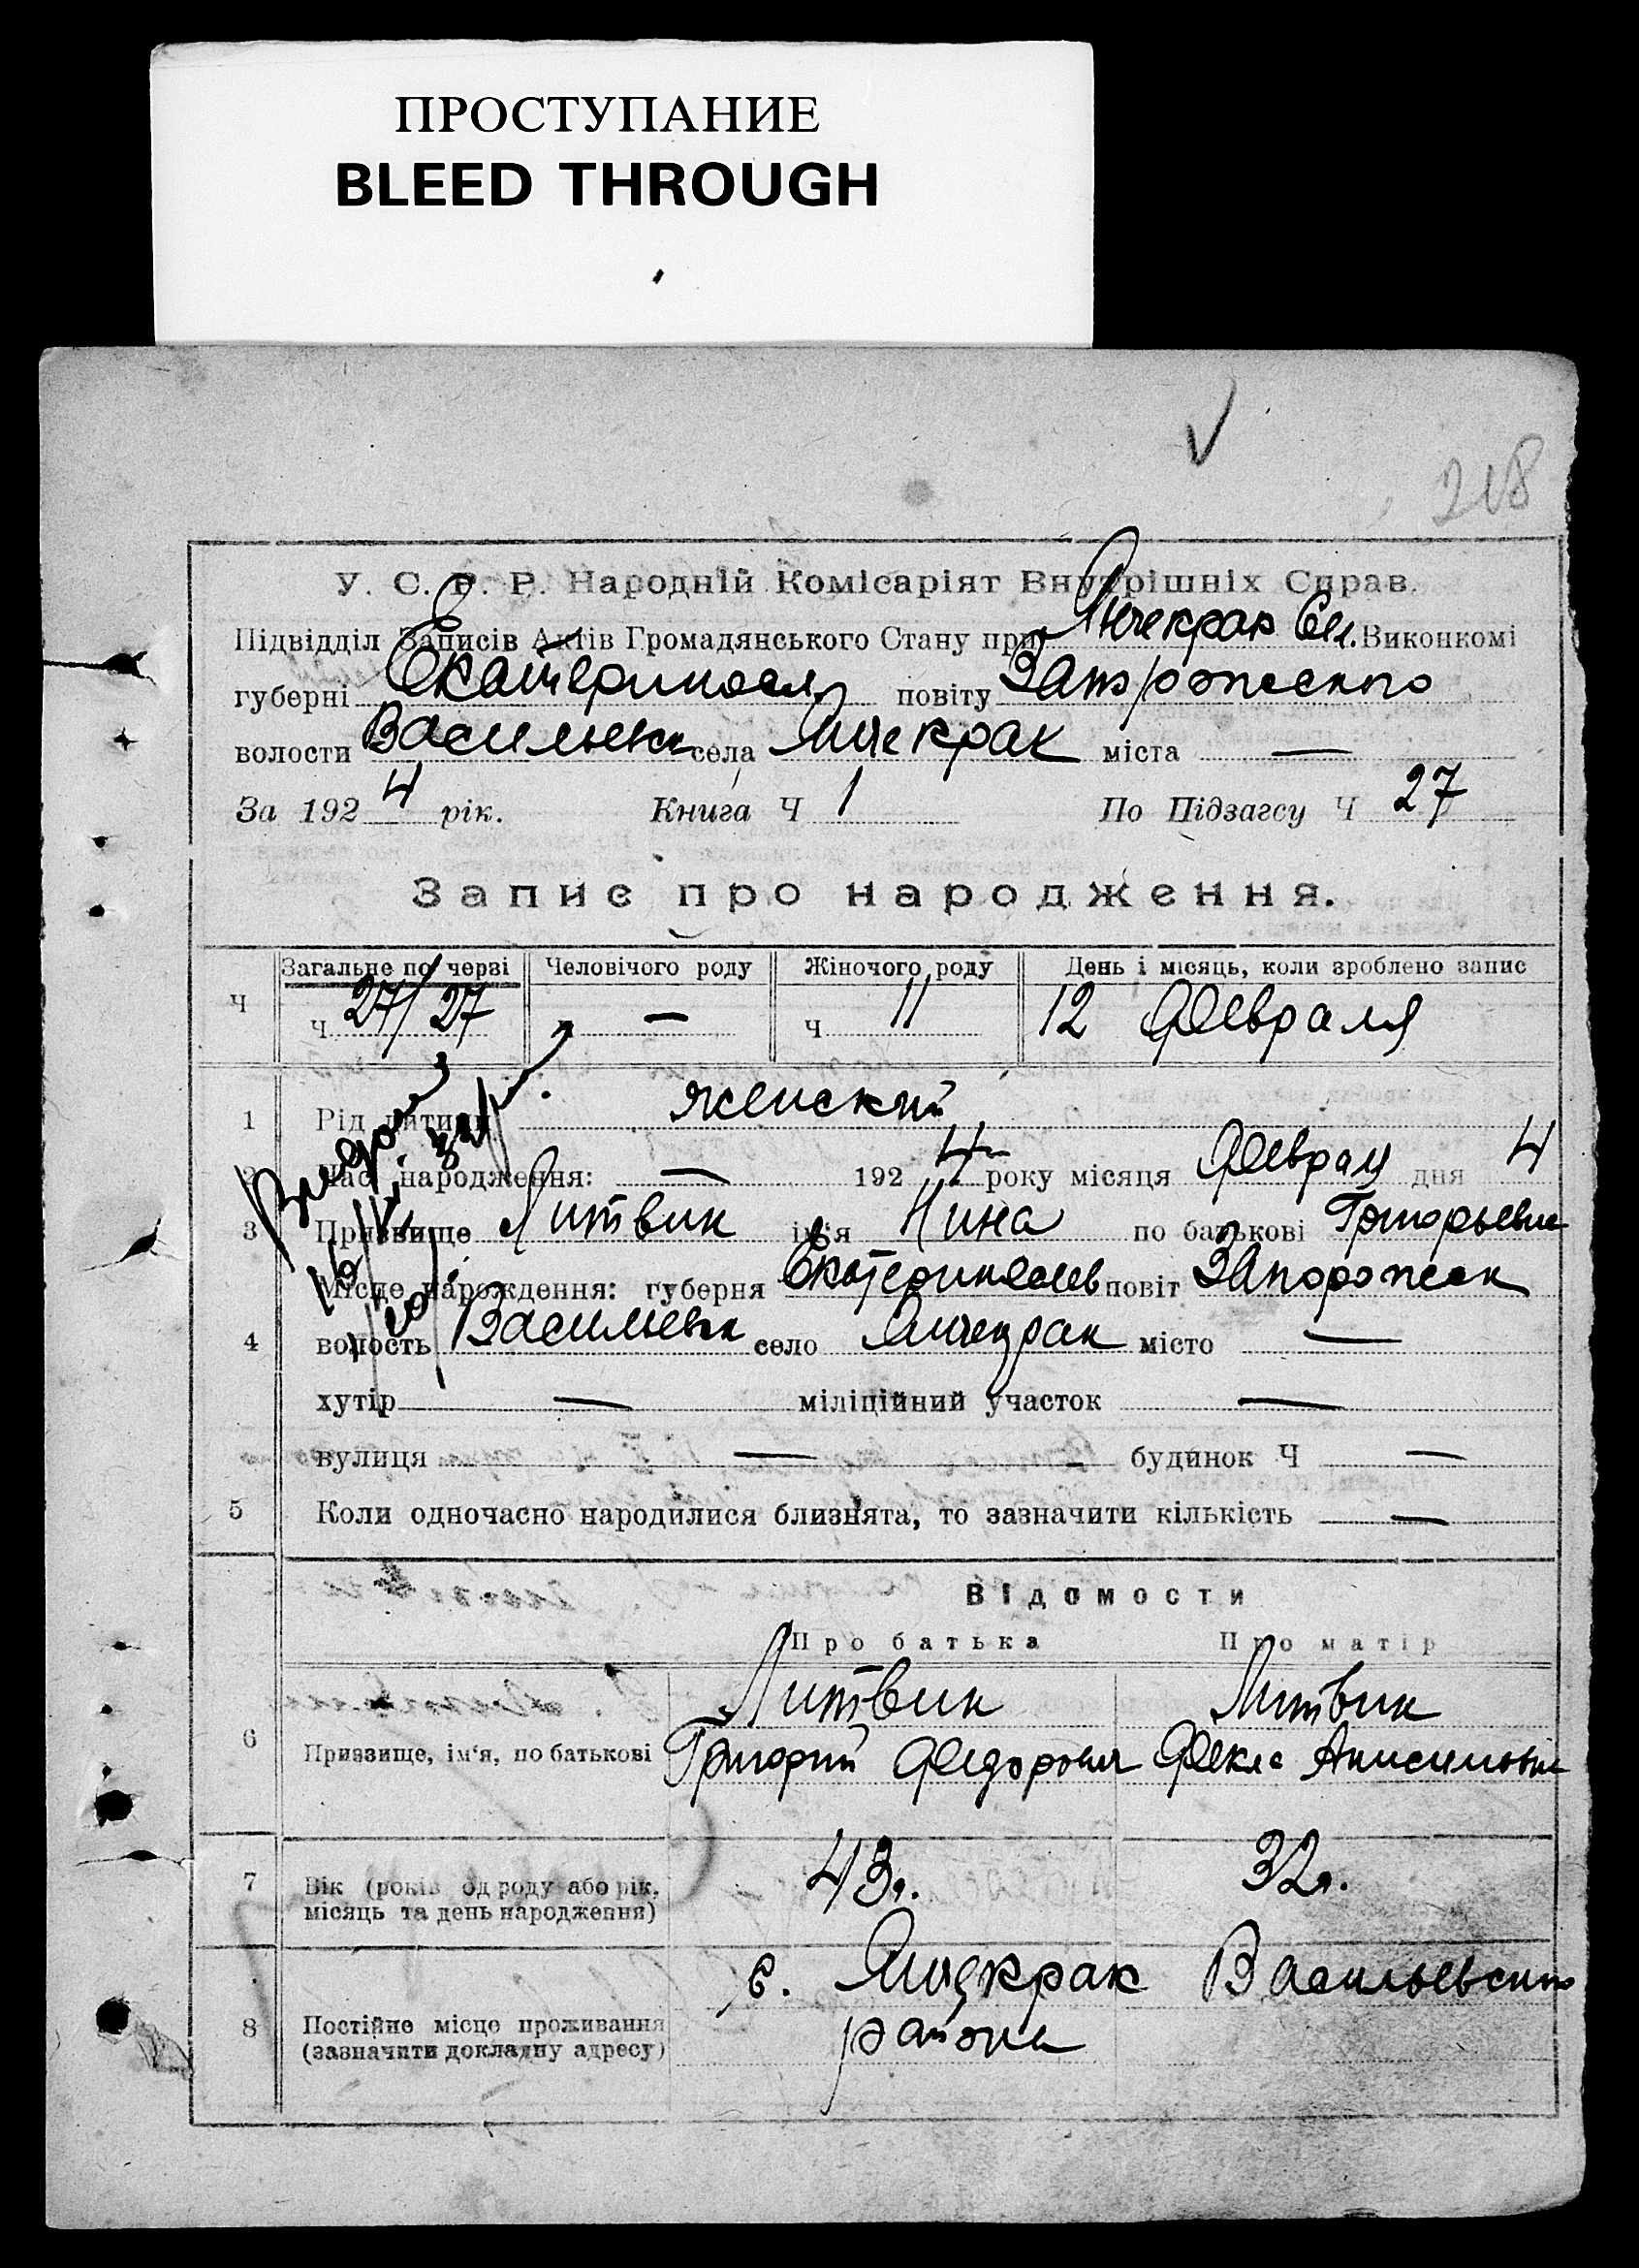 ПРОСТУПАНИЕ
BLEED THROUGH
218
У. С. Р. Р. Народній Комісаріят Внутрішніх Справ.
Підвідділ Записів Актів Громадянського Стану при Янчекрак Сел. Виконкомі
губерні Екатериносл повіту Запорожского
волости Васильевск села Янчекрак міста —
За 192 4 рік. Книга Ч 1 По Підзагсу Ч 27
Запис про народження.
Загальне по черзі Человічого роду Жіночого роду День і місяць, коли зроблено запис
Ч Ч 27/27 — Ч 11 12 Февраля
1 Рід дитини женский
2 Час народження: — 192 4 року місяця Феврал дня 4
3 Призвище Литвин ім'я Нина по батькові Григорьевна
Місце народження: губерня Екатеринослав повіт Запорожск
4 волость Васильевск село Янчекрак місто —
хутір — міліційний участок —
вулиця — будинок Ч —
5 Коли одночасно народилися близнята, то зазначити кількість —
Відомости
Про батька Про матір
Литвин Литвин
6 Призвище, ім'я, по батькові Григорий Федорович Фекла Анисимовна
7 Вік (років од роду або рік, місяць та день народження) 43 г. 32 г.
с. Янчекрак Васильевского
8 Постійне місце проживання района
(зазначити докладну адресу)